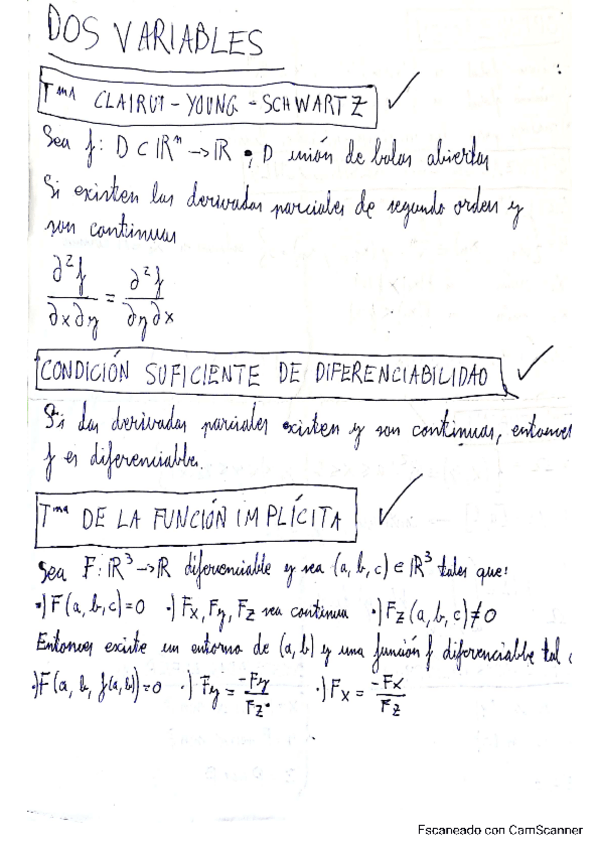 DOS VARIABLES
Tma CLAIRUT-YOUNG-SCHWARTZ
Sea f: D ⊂ ℝⁿ → ℝ , D unión de bolas abiertas
Si existen las derivadas parciales de segundo orden y
son continuas
∂²f/∂x∂y = ∂²f/∂y∂x
CONDICIÓN SUFICIENTE DE DIFERENCIABILIDAD
Si las derivadas parciales existen y son continuas, entonces
f es diferenciable.
Tma DE LA FUNCIÓN IMPLÍCITA
Sea F: ℝ³ → ℝ diferenciable y sea (a, b, c) ∈ ℝ³ tales que:
·) F(a, b, c) = 0 ·) Fx, Fy, Fz sea continua ·) Fz(a, b, c) ≠ 0
Entonces existe un entorno de (a, b) y una función f diferenciable tal
·) F(a, b, f(a,b)) = 0 ·) Fy = -Fy/Fz ·) Fx = -Fx/Fz
Escaneado con CamScanner